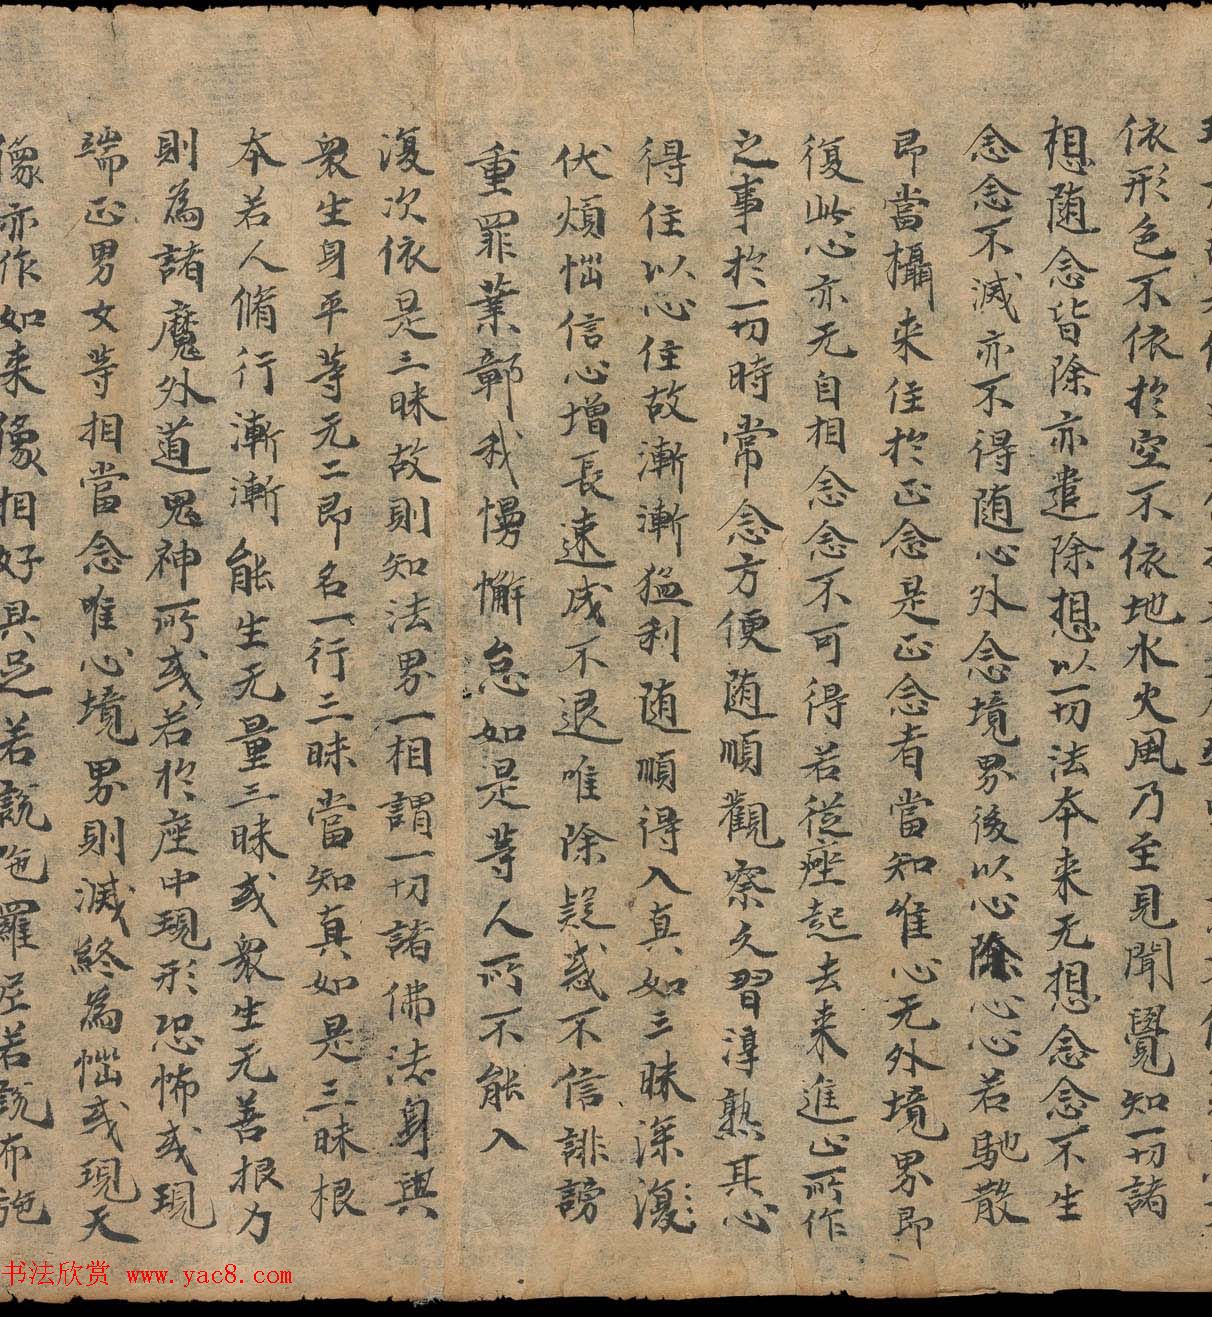 依形色不依於空不依地水火風乃至見聞覺知一切諸
想随念皆除亦遣除想以一切法本来无想念念不生
念念不滅亦不得随心外念境界後以心除心心若馳散
即當攝来住於正念是正念者當知唯心无外境界即
復此心亦无自相念念不可得若從座起去来進止所作
之事於一切時常念方便随順觀察久習淳熟其心
得住以心住故漸漸猛利随順得入真如三昧深復
伏煩惱信心增長速成不退唯除疑惑不信誹謗
重罪業鄣我慢懈怠如是等人所不能入
復次依是三昧故則知法界一相謂一切諸佛法身與
衆生身平等无二即名一行三昧當知真如是三昧根
本若人脩行漸漸能生无量三昧或衆生无善根力
則為諸魔外道鬼神所或若於座中現形恐怖或現
端正男女等相當念唯心境界則滅終為惱或現天
像亦作如来像相好具足若說陁羅尼若說布施
书法欣赏 www.yac8.com